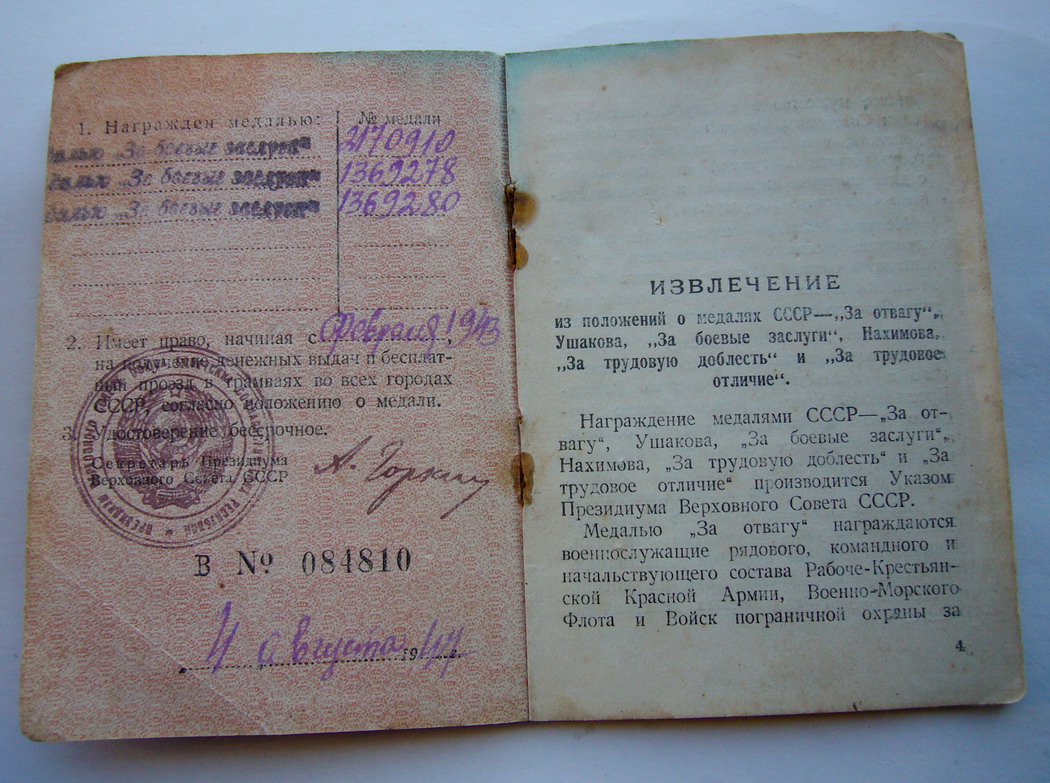 1. Награжден медалью:
№ медали
„За боевые заслуги“ 2170910
„За боевые заслуги“ 1369278
„За боевые заслуги“ 1369280
2. Имеет право, начиная с Февраля 1943,
на получение денежных выдач и бесплат-
ный проезд в трамваях во всех городах
СССР, согласно положению о медали.
3. Удостоверение бессрочное.
Секретарь Президиума
Верховного Совета СССР
А. Горкин
В № 084810
4 августа 1947 г.
ИЗВЛЕЧЕНИЕ
из положений о медалях СССР—„За отвагу“,
Ушакова, „За боевые заслуги“, Нахимова,
„За трудовую доблесть“ и „За трудовое
отличие“.
Награждение медалями СССР—„За от-
вагу“, Ушакова, „За боевые заслуги“,
Нахимова, „За трудовую доблесть“ и „За
трудовое отличие“ производится Указом
Президиума Верховного Совета СССР.
Медалью „За отвагу“ награждаются
военнослужащие рядового, командного и
начальствующего состава Рабоче-Крестьян-
ской Красной Армии, Военно-Морского
Флота и Войск пограничной охраны за
4